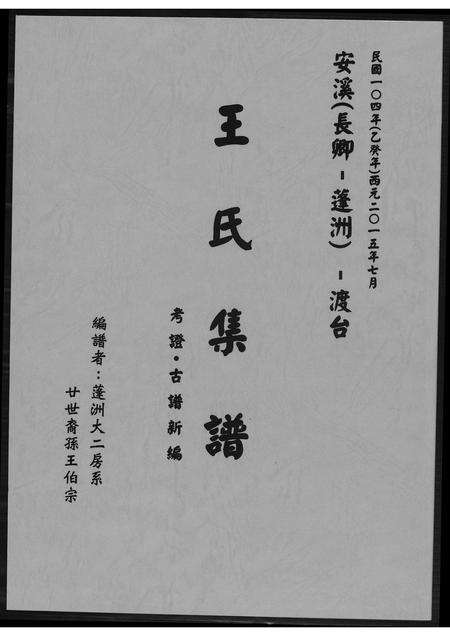 民國一〇四年(乙癸年)西元二〇一五年七月
安溪(長卿-蓬洲)-渡台
王氏集譜
考證·古譜新編
編譜者：蓬洲大二房系
廿世裔孫王伯宗